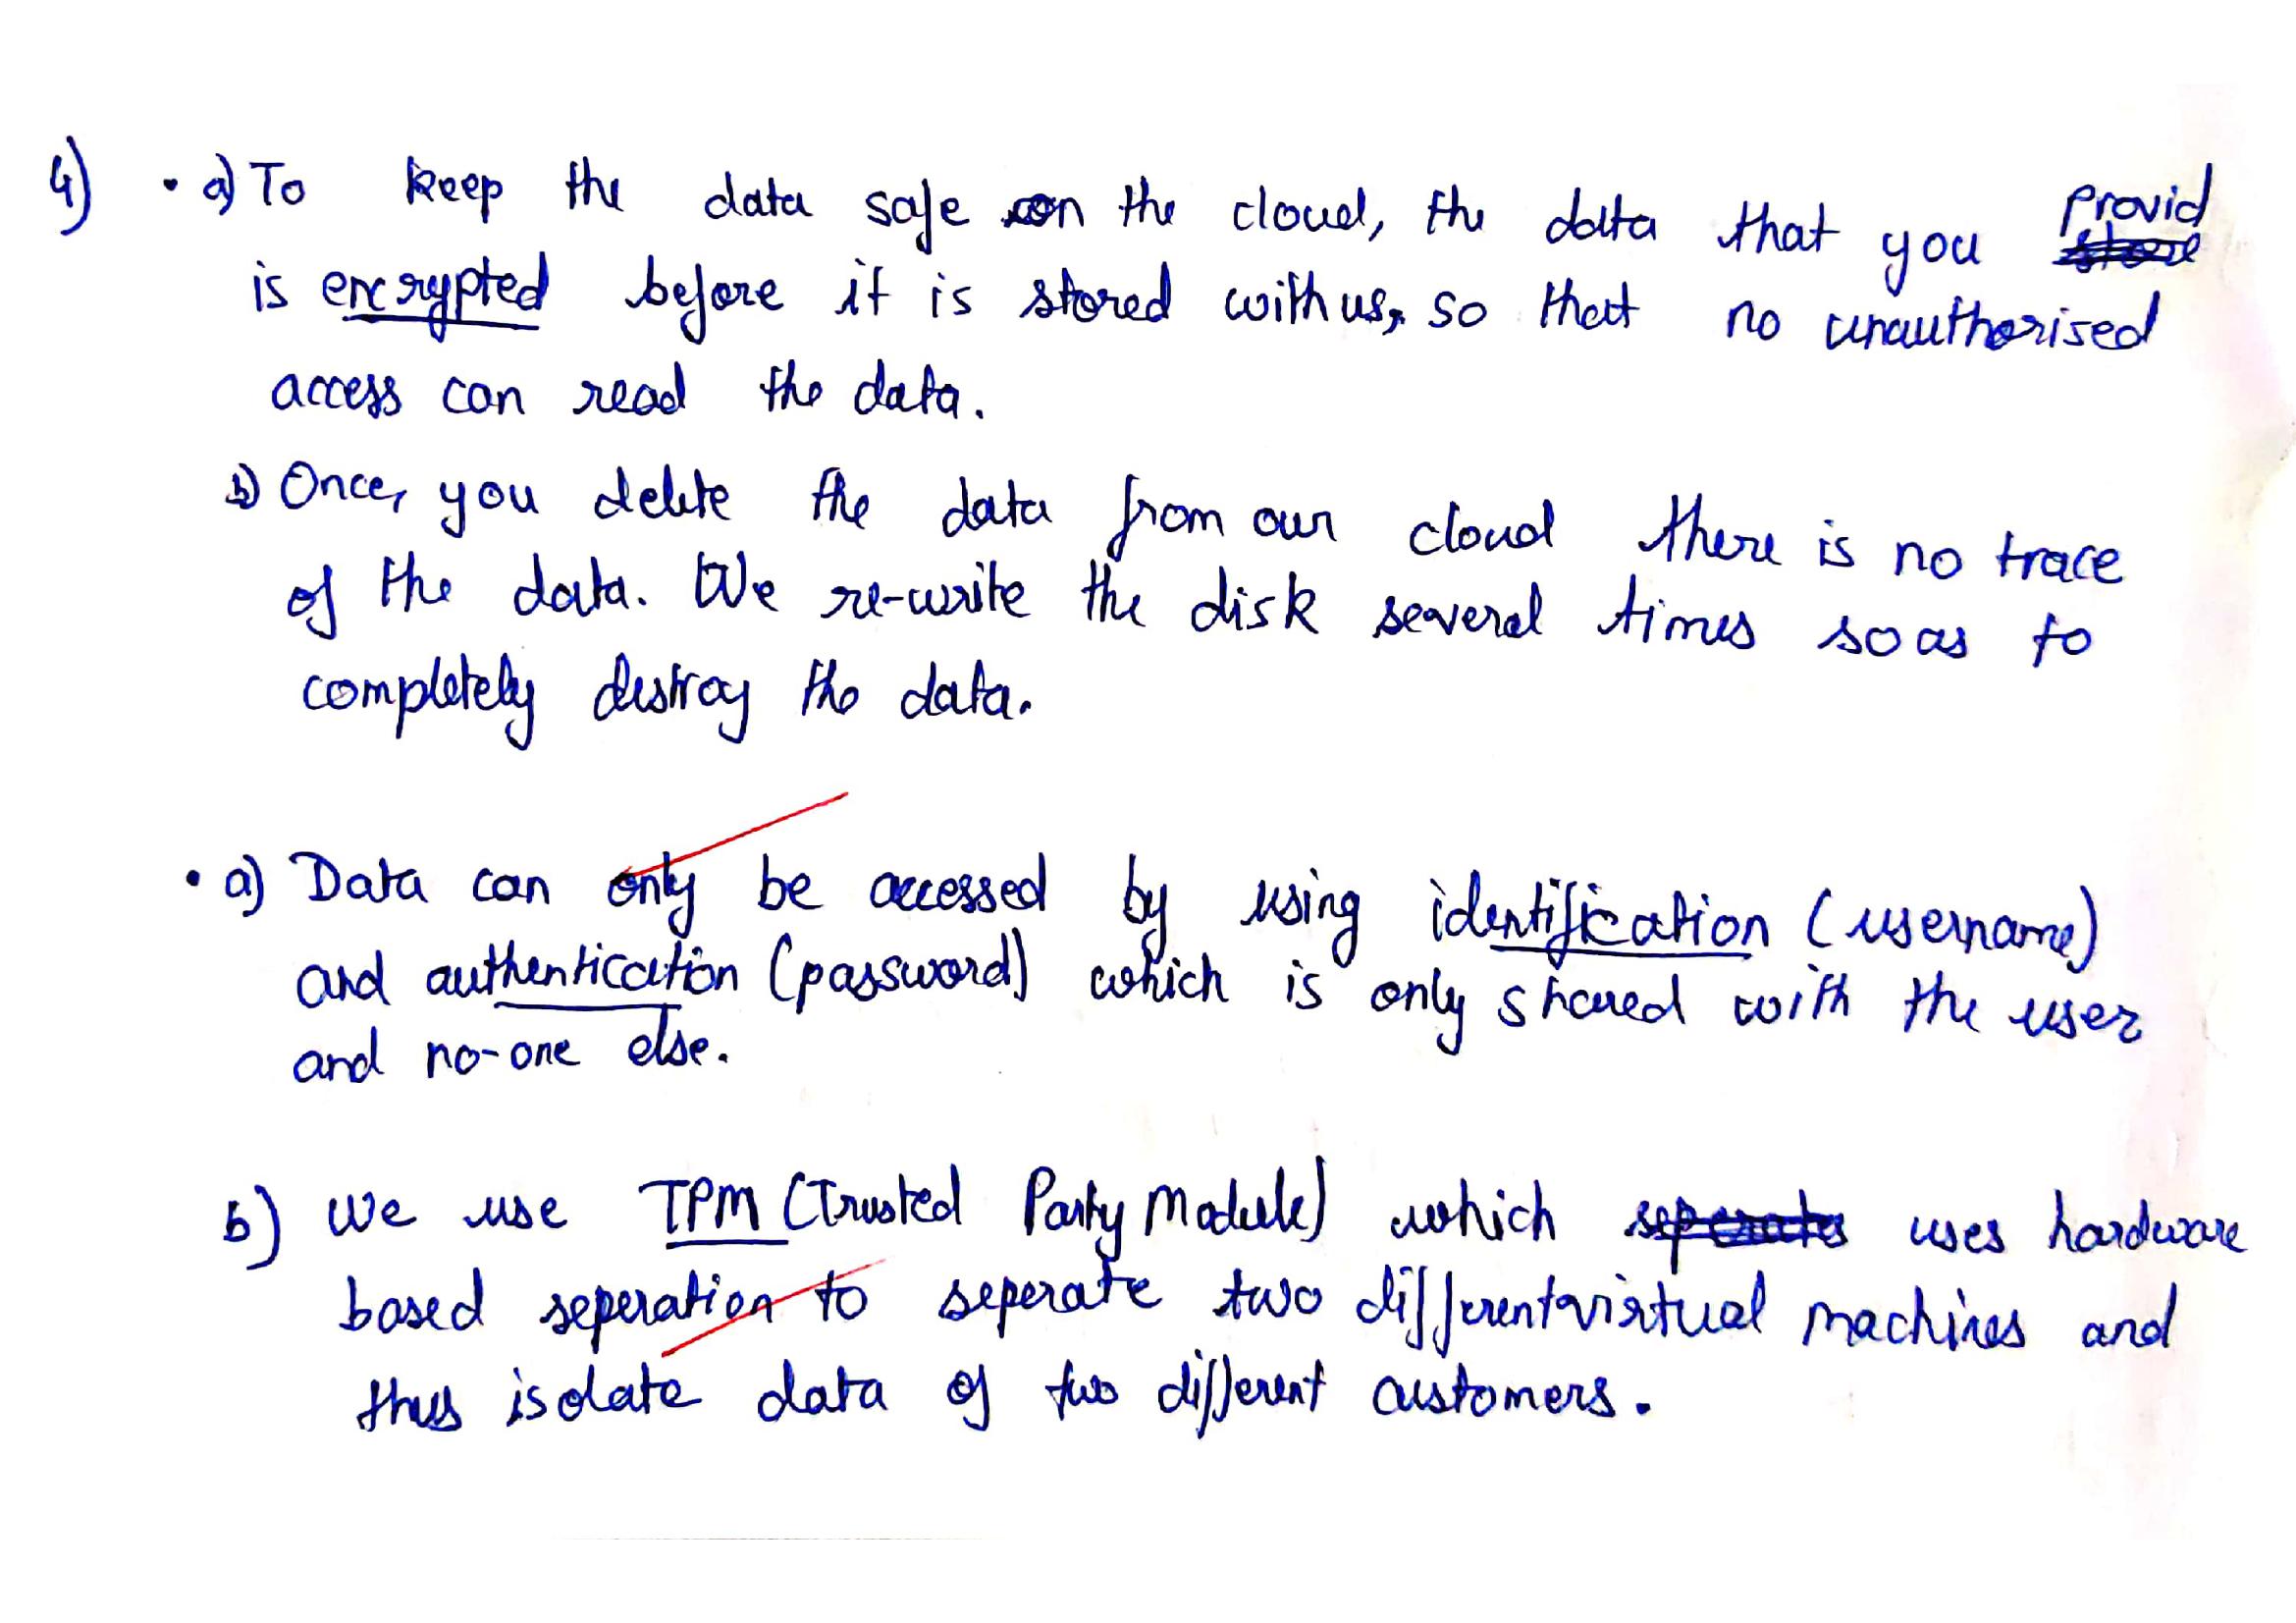 4) • a) To keep the data safe on the cloud, the data that you provid
is encrypted before it is stored with us, so that no unauthorised
access can read the data.
b) Once, you delete the data from our cloud there is no trace
of the data. We re-write the disk several times so as to
completely destroy the data.
• a) Data can only be accessed by using identification (username)
and authentication (password) which is only shared with the user
and no-one else.
b) We use TPM (Trusted Party Module) which uses hardware
based seperation to seperate two different virtual machines and
thus isolate data of two different customers.